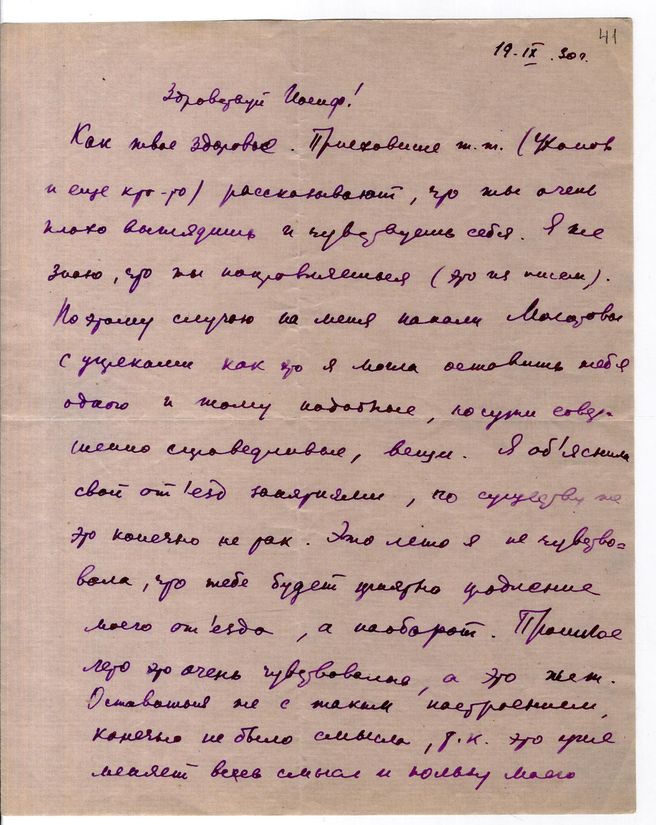 41
19.IX.30г.
Здравствуй Иосиф!
Как твое здоровье. Приехавшие т.т. (Уханов
и еще кто-то) рассказывают, что ты очень
плохо выглядишь и чувствуешь себя. Я же
знаю, что ты поправляешься (это из писем).
По этому случаю на меня напали Молотовы
с упреками как это я могла оставить тебя
одного и тому подобные, по сути совер-
шенно справедливые, вещи. Я об'яснила
свой от'езд занятиями, по существу же
это конечно не так. Это лето я не чувство=
вала, что тебе будет приятно продление
моего от'езда, а наоборот. Прошлое
лето это очень чувствовалось, а это нет.
Оставаться же с таким настроением,
конечно не было смысла, т.к. это уже
меняет весь смысл и пользу моего